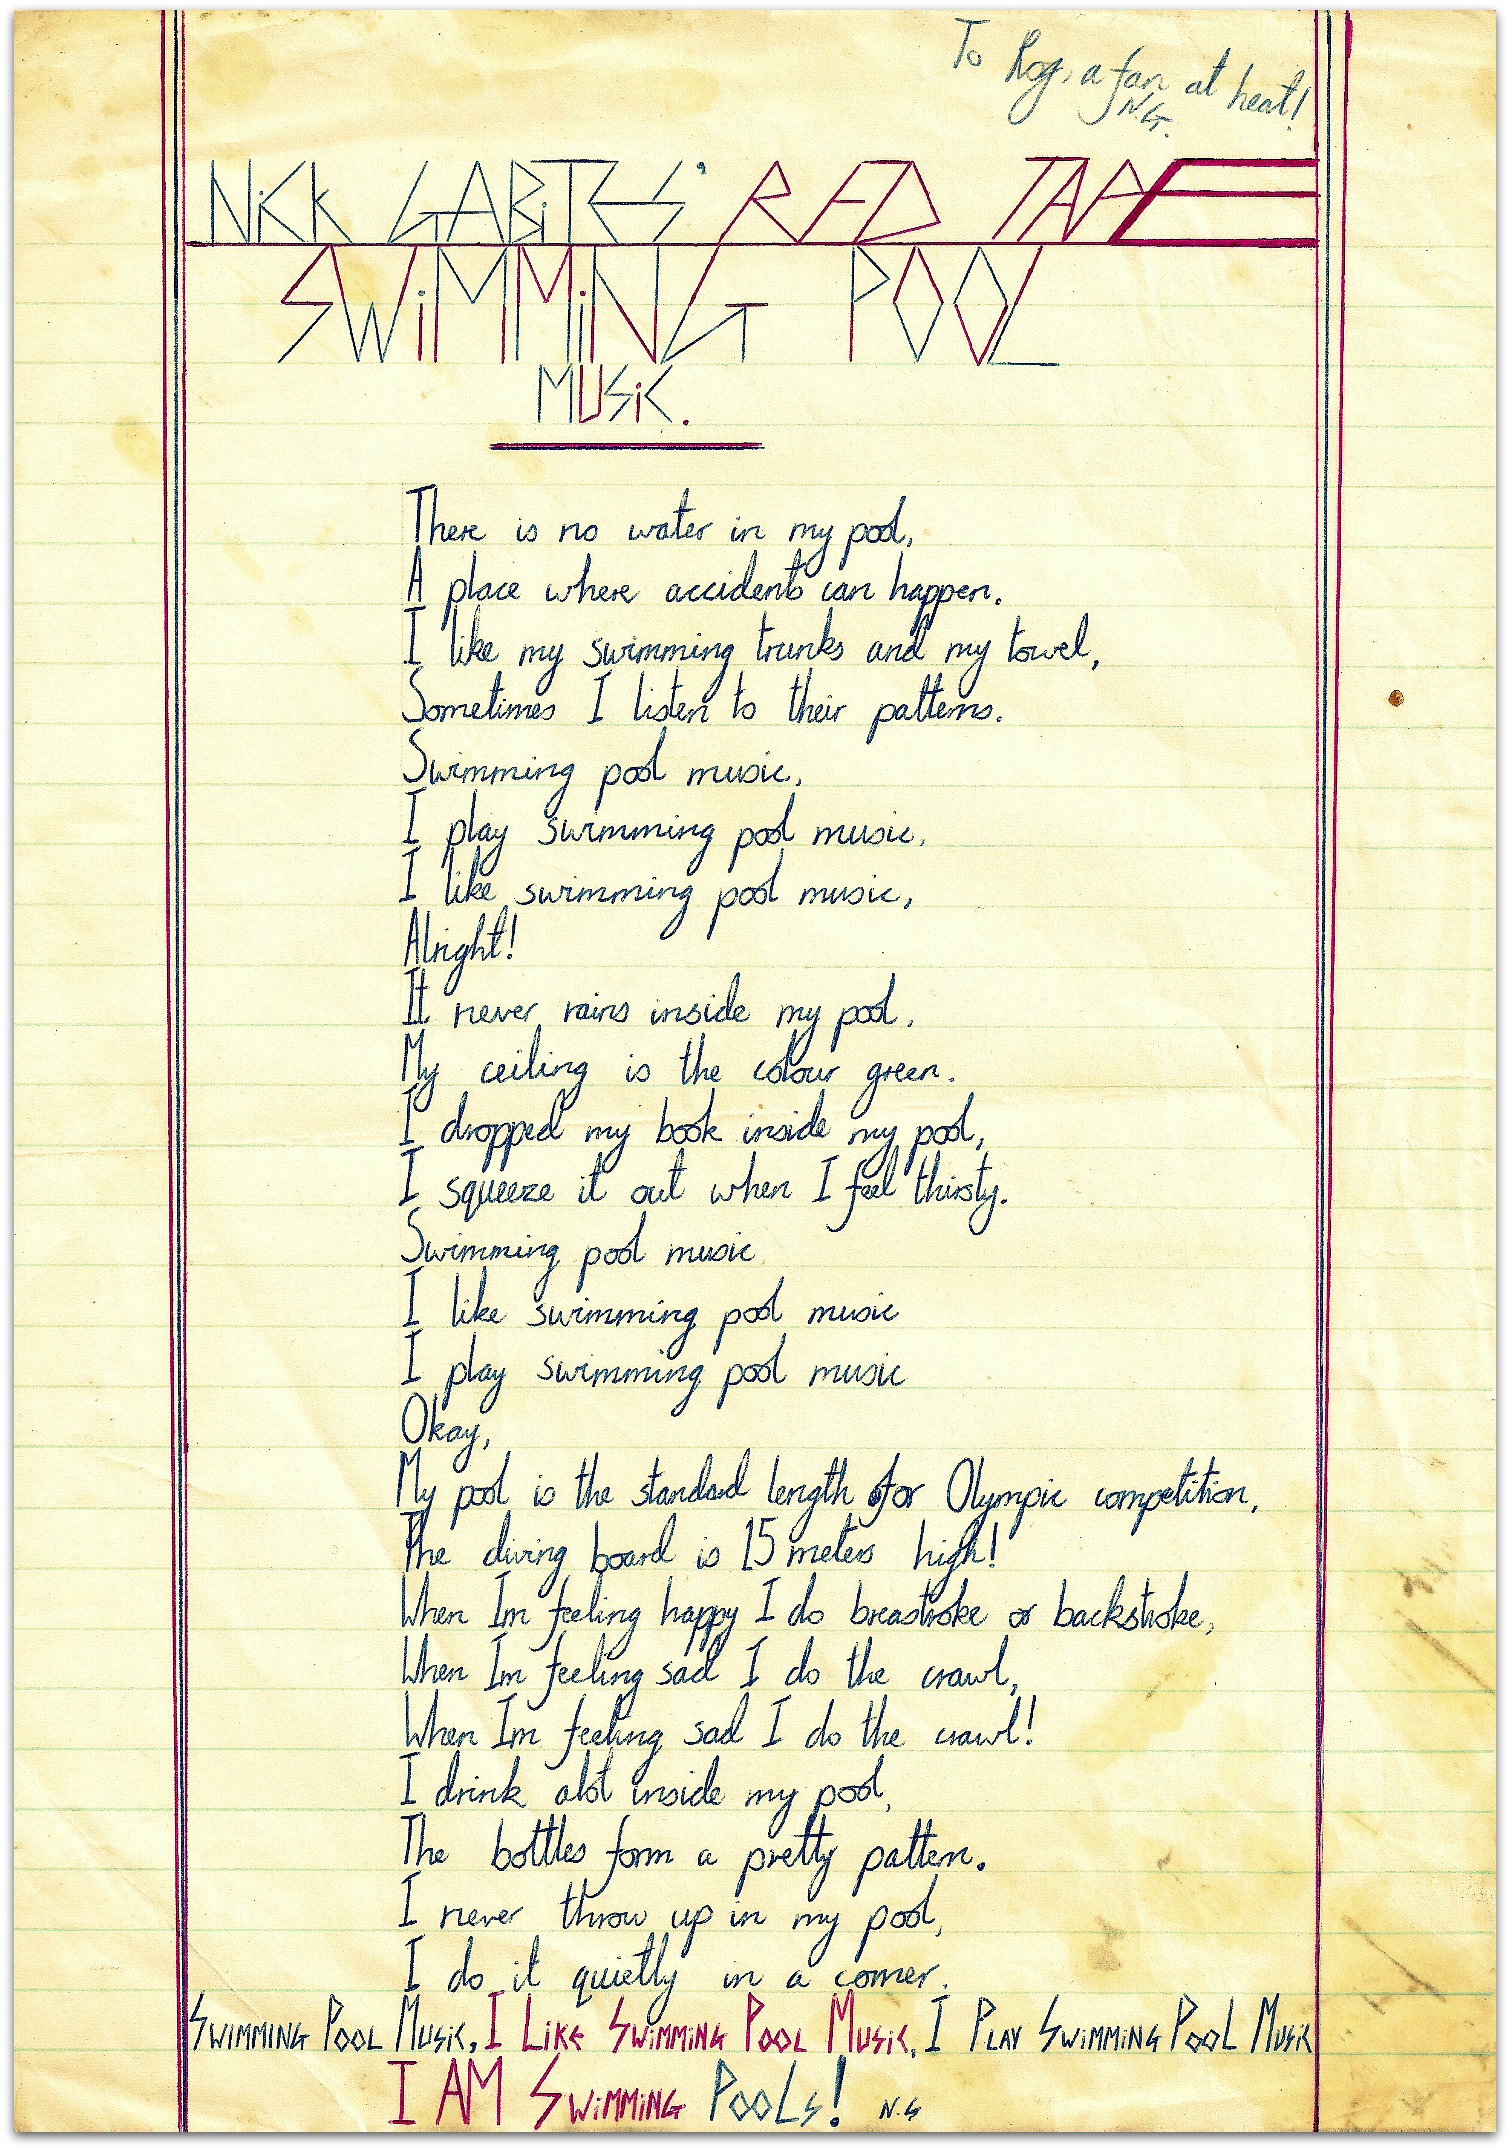 To Rog, a fan at heat!
N.G.
NiCK GABiTES' RED TAPE
SWiMMiNG POOL
MUSiC.
There is no water in my pool,
A place where accidents can happen.
I like my swimming trunks and my towel,
Sometimes I listen to their patterns.
Swimming pool music,
I play swimming pool music,
I like swimming pool music,
Alright!
It never rains inside my pool,
My ceiling is the colour green.
I dropped my book inside my pool,
I squeeze it out when I feel thirsty.
Swimming pool music
I like swimming pool music
I play swimming pool music
Okay,
My pool is the standard length for Olympic competition,
The diving board is 15 meters high!
When Im feeling happy I do breastroke or backstroke,
When Im feeling sad I do the crawl,
When Im feeling sad I do the crawl!
I drink alot inside my pool,
The bottles form a pretty pattern.
I never throw up in my pool,
I do it quietly in a corner.
SWiMMiNG POOL MUSiC, I LiKE SWiMMiNG POOL MUSiC, I PLAY SWiMMiNG POOL MUSiC
I AM SWiMMiNG POOLS! N.G